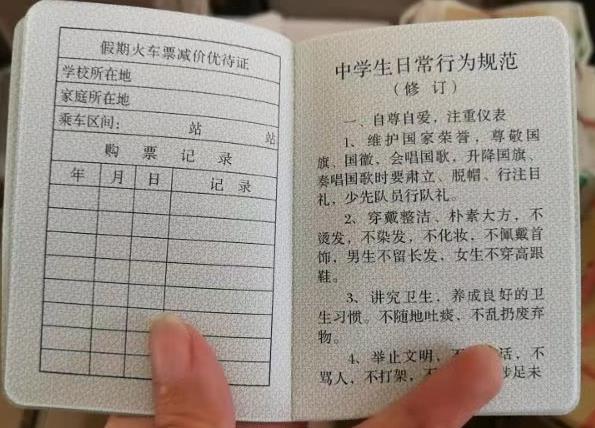 假期火车票减价优待证
学校所在地
家庭所在地
乘车区间： 站 站
购 票 记 录
年 月 日 记 录
中学生日常行为规范
（修 订）
一、自尊自爱，注重仪表
1、维护国家荣誉，尊敬国
旗、国徽，会唱国歌，升降国旗、
奏唱国歌时要肃立、脱帽、行注目
礼，少先队员行队礼。
2、穿戴整洁、朴素大方，不
烫发，不染发，不化妆，不佩戴首
饰，男生不留长发，女生不穿高跟
鞋。
3、讲究卫生，养成良好的卫
生习惯。不随地吐痰，不乱扔废弃
物。
4、举止文明，不 话，不
骂人，不打架，不 涉足未